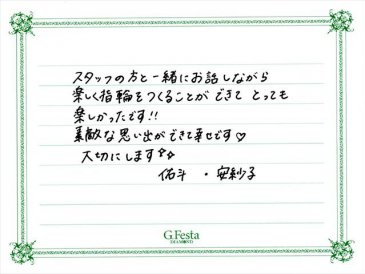 スタッフの方と一緒にお話しながら
楽しく指輪をつくることができて とっても
楽しかったです!!
素敵な思い出ができて幸せです♡
大切にします✩✩
佑斗 ・ 安紗子
G.Festa
DIAMOND